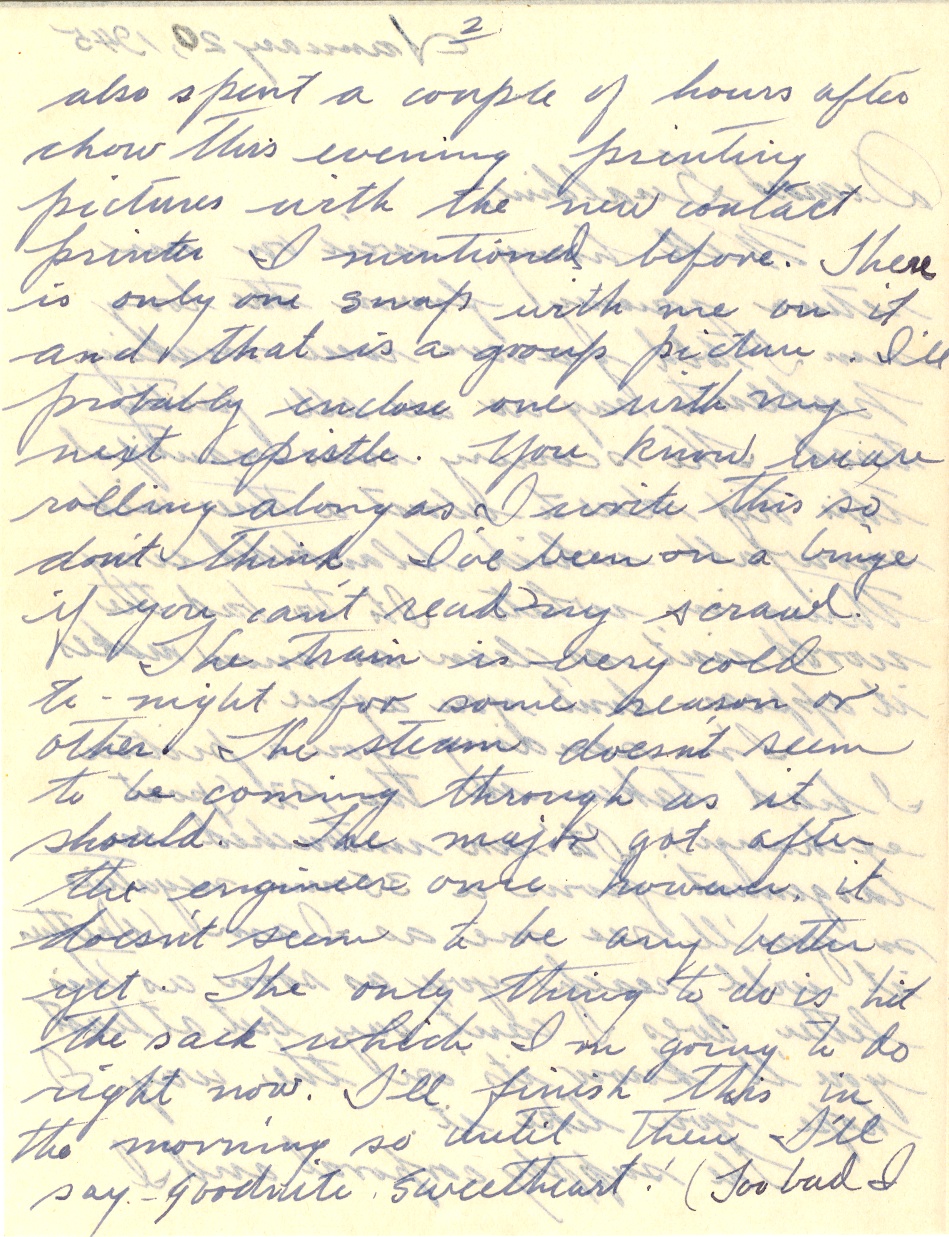 2
also spent a couple of hours after
chow this evening printing
pictures with the new contact
printer I mentioned before. There
is only one snap with me on it
and that is a group picture. I'll
probably enclose one with my
next epistle. You know we are
rolling along as I write this so
don't think I've been on a binge
if you can't read my scrawl.
The train is very cold
to-night for some reason or
other. The steam doesn't seem
to be coming through as it
should. The major got after
the engineer once however, it
doesn't seem to be any better
yet. The only thing to do is hit
the sack which I'm going to do
right now. I'll finish this in
the morning so until then I'll
say goodnite sweetheart! (Too bad I